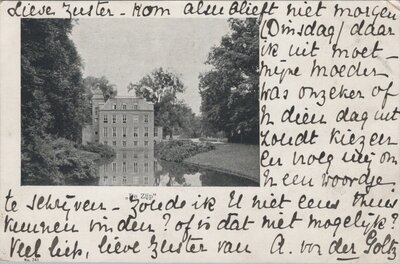 Lieve Zuster - Kom alsublieft niet morgen
(Dinsdag) daar
ik uit moet -
mijne moeder
was onzeker of
'n dien dag uit
zoudt kiezen
en vroeg mij om
'n een woordje
te schrijven - Zoude ik U niet eens thuis
kunnen vinden? of is dat niet mogelijk?
Veel liefs, lieve Zuster van A. von der Goltz
"De Zijp"
No. 241